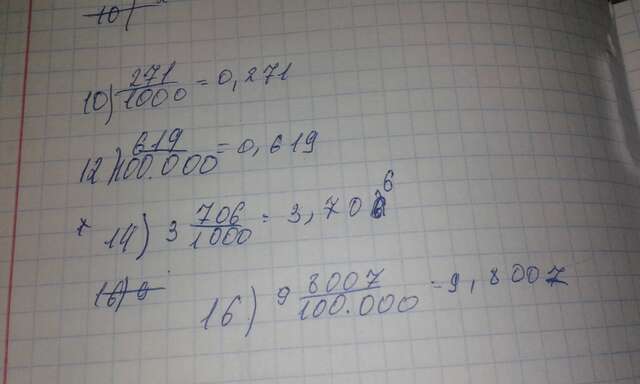 10)
10) 271/1000 = 0,271
12) 619/100.000 = 0,619
14) 3 706/1000 = 3,706
16) 9
16) 9 8007/100.000 = 9,8007